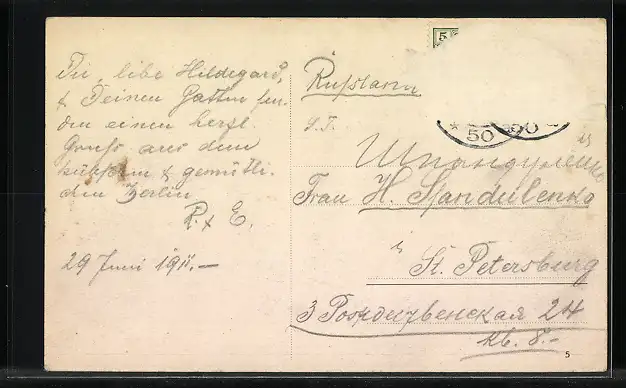 Dir, liebe Hildegard,
& Deinen Gatten sen-
den einen herzl.
Gruss aus dem
schönen & gemütli-
chen Berlin
R. & E.
29 Juni 1911.—
5
Russland
S. T.
50
Шпандуленко
Frau H. Spandulenko
St. Petersburg
3 Рождественская 24
кв. 8.-
5